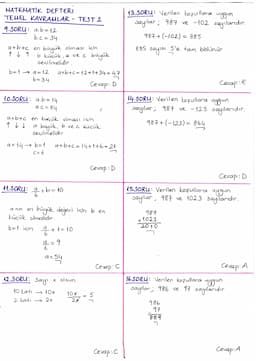 MATEMATİK DEFTERİ
TEMEL KAVRAMLAR - TEST 2
9.SORU: a.b=12
b.c=34
a+b+c en büyük olması için
↑ ↓ ↑ b küçük, a ve c büyük
seçilmelidir
b=1 → a=12 a+b+c=12+1+34=47
b=34
Cevap: D
10.SORU: a.b=14
a.c=84
a+b+c en küçük olması için
↑ ↓ ↓ a büyük, b ve c küçük
seçilmelidir
a=14 → b=1 a+b+c=14+1+6=21
c=6
Cevap: D
11.SORU: a/6 + b = 10
a nın en büyük değeri için b en
küçük olmalıdır
b=1 için a/6 + 1 = 10
a/6 = 9
a=54
Cevap: C
12.SORU: Sayı x olsun
10 katı → 10x
2 katı → 2x
10x/2x = 5
Cevap: C
13.SORU: Verilen koşullara uygun
sayılar, 987 ve -102 sayılarıdır.
987+(-102)=885
885 sayısı 5'e tam bölünür
Cevap: E
14.SORU: Verilen koşullara uygun
sayılar, 987 ve -123 sayılarıdır.
987+(-123)=864
Cevap: D
15.SORU: Verilen koşullara uygun
sayılar, 987 ve 1023 sayılarıdır
987
+1023
2010
Cevap: A
16.SORU: Verilen koşullara uygun
sayılar, 986 ve 97 sayılarıdır
986
97
889
Cevap: A